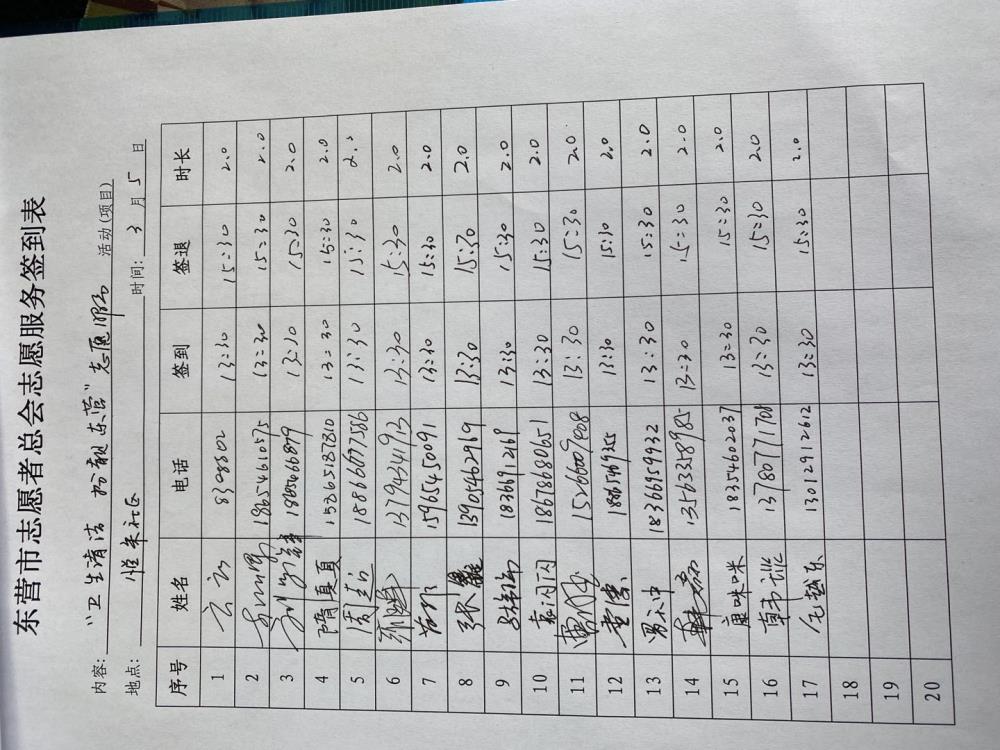 东营市志愿者总会志愿服务签到表
内容: "卫生清洁 扮靓东营"志愿服务 活动(项目)
地点: 社区 时间: 3 月 5 日
序号 姓名 电话 签到 签退 时长
1 13:30 15:30 2.0
2 13:30 15:30 2.0
3 13:30 15:30 2.0
4 隋夏夏 15865187810 13:30 15:30 2.0
5 18866607586 13:30 15:30 2.0
6 13794341913 13:30 15:30 2.0
7 15965450091 13:30 15:30 2.0
8 张 13905462969 13:30 15:30 2.0
9 18366912169 13:30 15:30 2.0
10 袁闪闪 18678680651 13:30 15:30 2.0
11 15266009808 13:30 15:30 2.0
12 13:30 15:30 2.0
13 18366959932 13:30 15:30 2.0
14 13563358985 13:30 15:30 2.0
15 康咪咪 18354602037 13:30 15:30 2.0
16 13780771708 13:30 15:30 2.0
17 13012912612 13:30 15:30 2.0
18
19
20